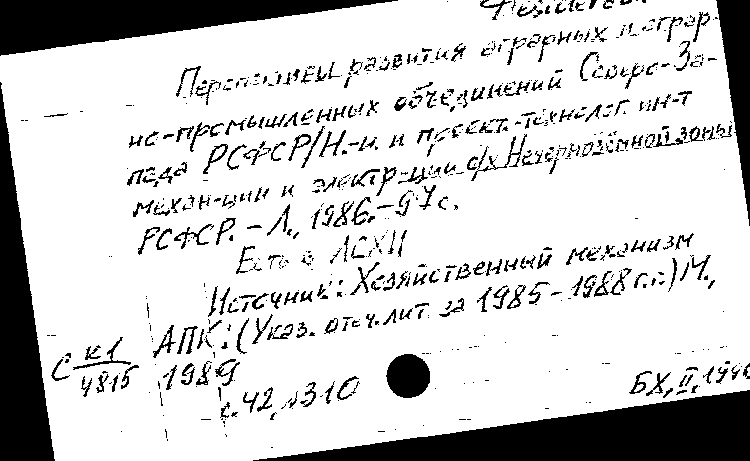 Desiderata
Перспективы развития аграрных и аграр-
но-промышленных объединений Северо-За-
пада РСФСР/Н.-и. и проект.-технолог. ин-т
механ-ции и электр-ции с/х Нечернозёмной зоны
РСФСР. - Л., 1986. - 97 с.
Есть в ЛСХИ
Источник: Хозяйственный механизм
АПК: (Указ. отеч. лит. за 1985-1988 г.г.) М.,
1989
с. 42, №310
С к1/4815
БХ, II, 1990